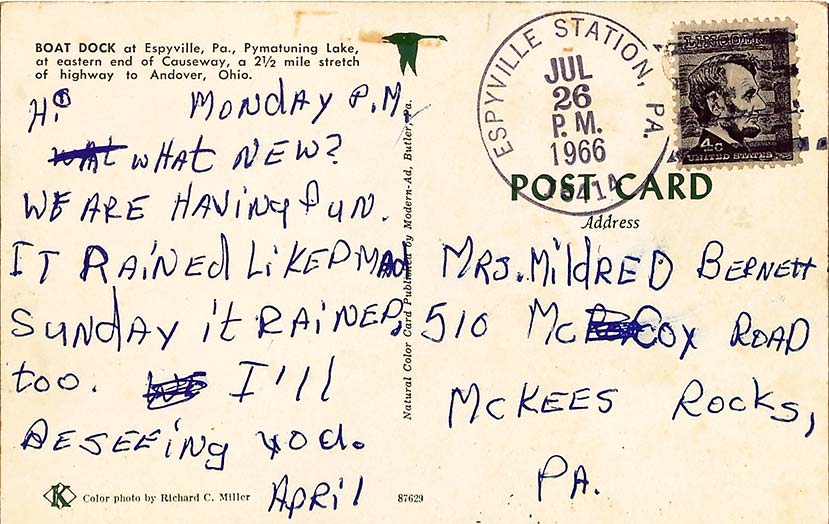 BOAT DOCK at Espyville, Pa., Pymatuning Lake,
at eastern end of Causeway, a 2½ mile stretch
of highway to Andover, Ohio.
Hi Monday P.M.
WHAT NEW?
WE ARE HAVING FUN.
IT RAINED LIKE MAD
SUNDAY it RAINED,
too. I'll
BE SEEING YOU.
APRIl
Color photo by Richard C. Miller
K
87629
Natural Color Card Published by Modern-Ad, Butler, Pa.
ESPYVILLE STATION, PA.
JUL
26
P. M.
1966
LINCOLN
4c
UNITED STATES
POST CARD
Address
MRS. MildRED BERNEtt
510 McCOY ROAD
McKEES ROCKS,
PA.